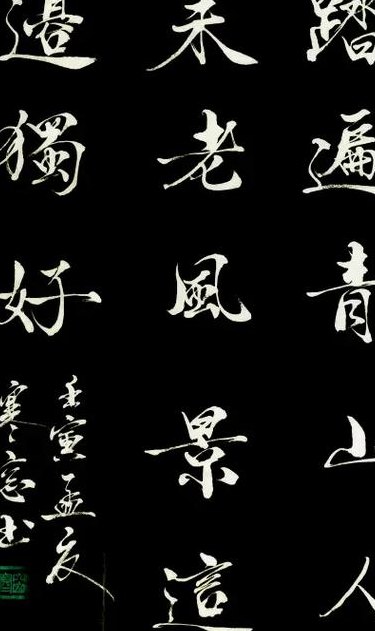 踏遍青山人
未老風景這
邊獨好
壬寅孟夏
寒书